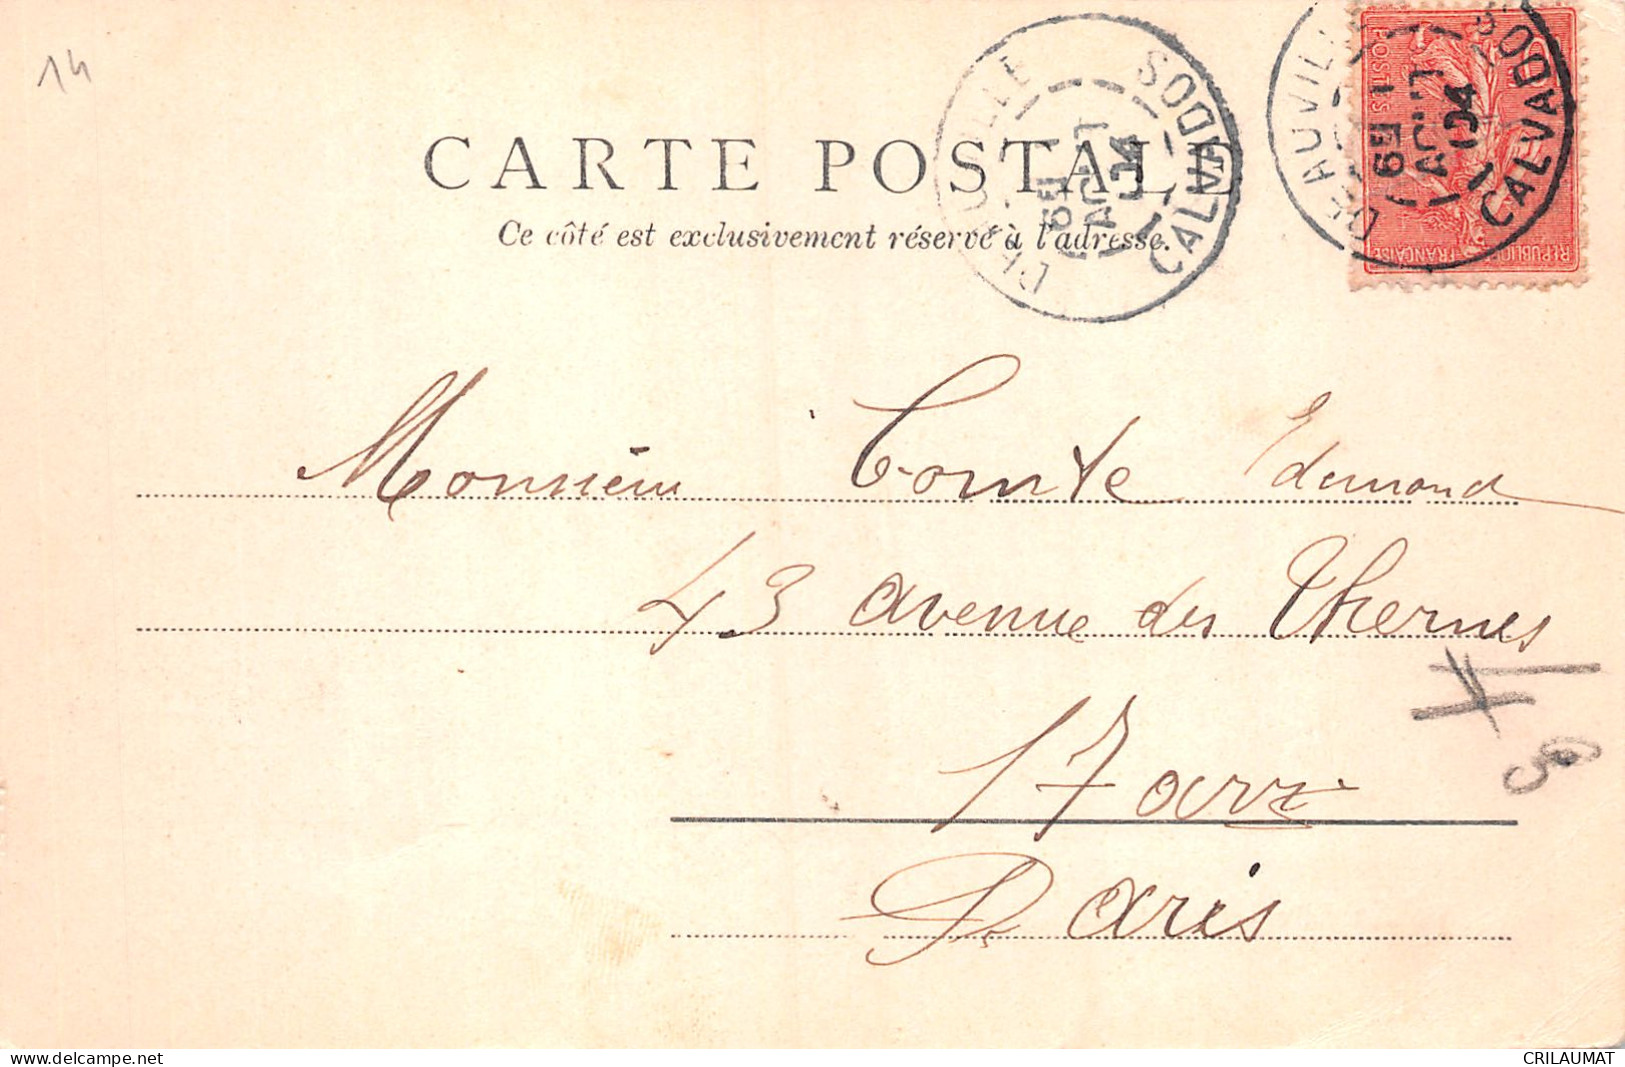 14
CARTE POSTALE
Ce côté est exclusivement réservé à l'adresse.
DEAUVILLE
CALVADOS
6E / 1
AOUT
04
DEAUVILLE
CALVADOS
6E / 1
AOUT
04
POSTES
REPUBLIQUE FRANÇAISE
Monsieur Comte Edmond
43 avenue des Thernes
17 arr
Paris
www.delcampe.net
CRILAUMAT